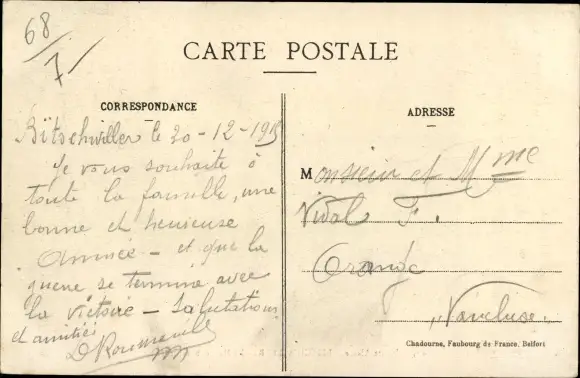 68
7
CARTE POSTALE
CORRESPONDANCE
Bitschwiller le 20-12-1915
Je vous souhaite à
toute la famille, une
bonne et heureuse
année - et que la
guerre se termine avec
la victoire - Salutations
et amitiés
ADRESSE
Monsieur et Mme
Vidal F.
Orange
Vaucluse.
Chadourne, Faubourg de France, Belfort